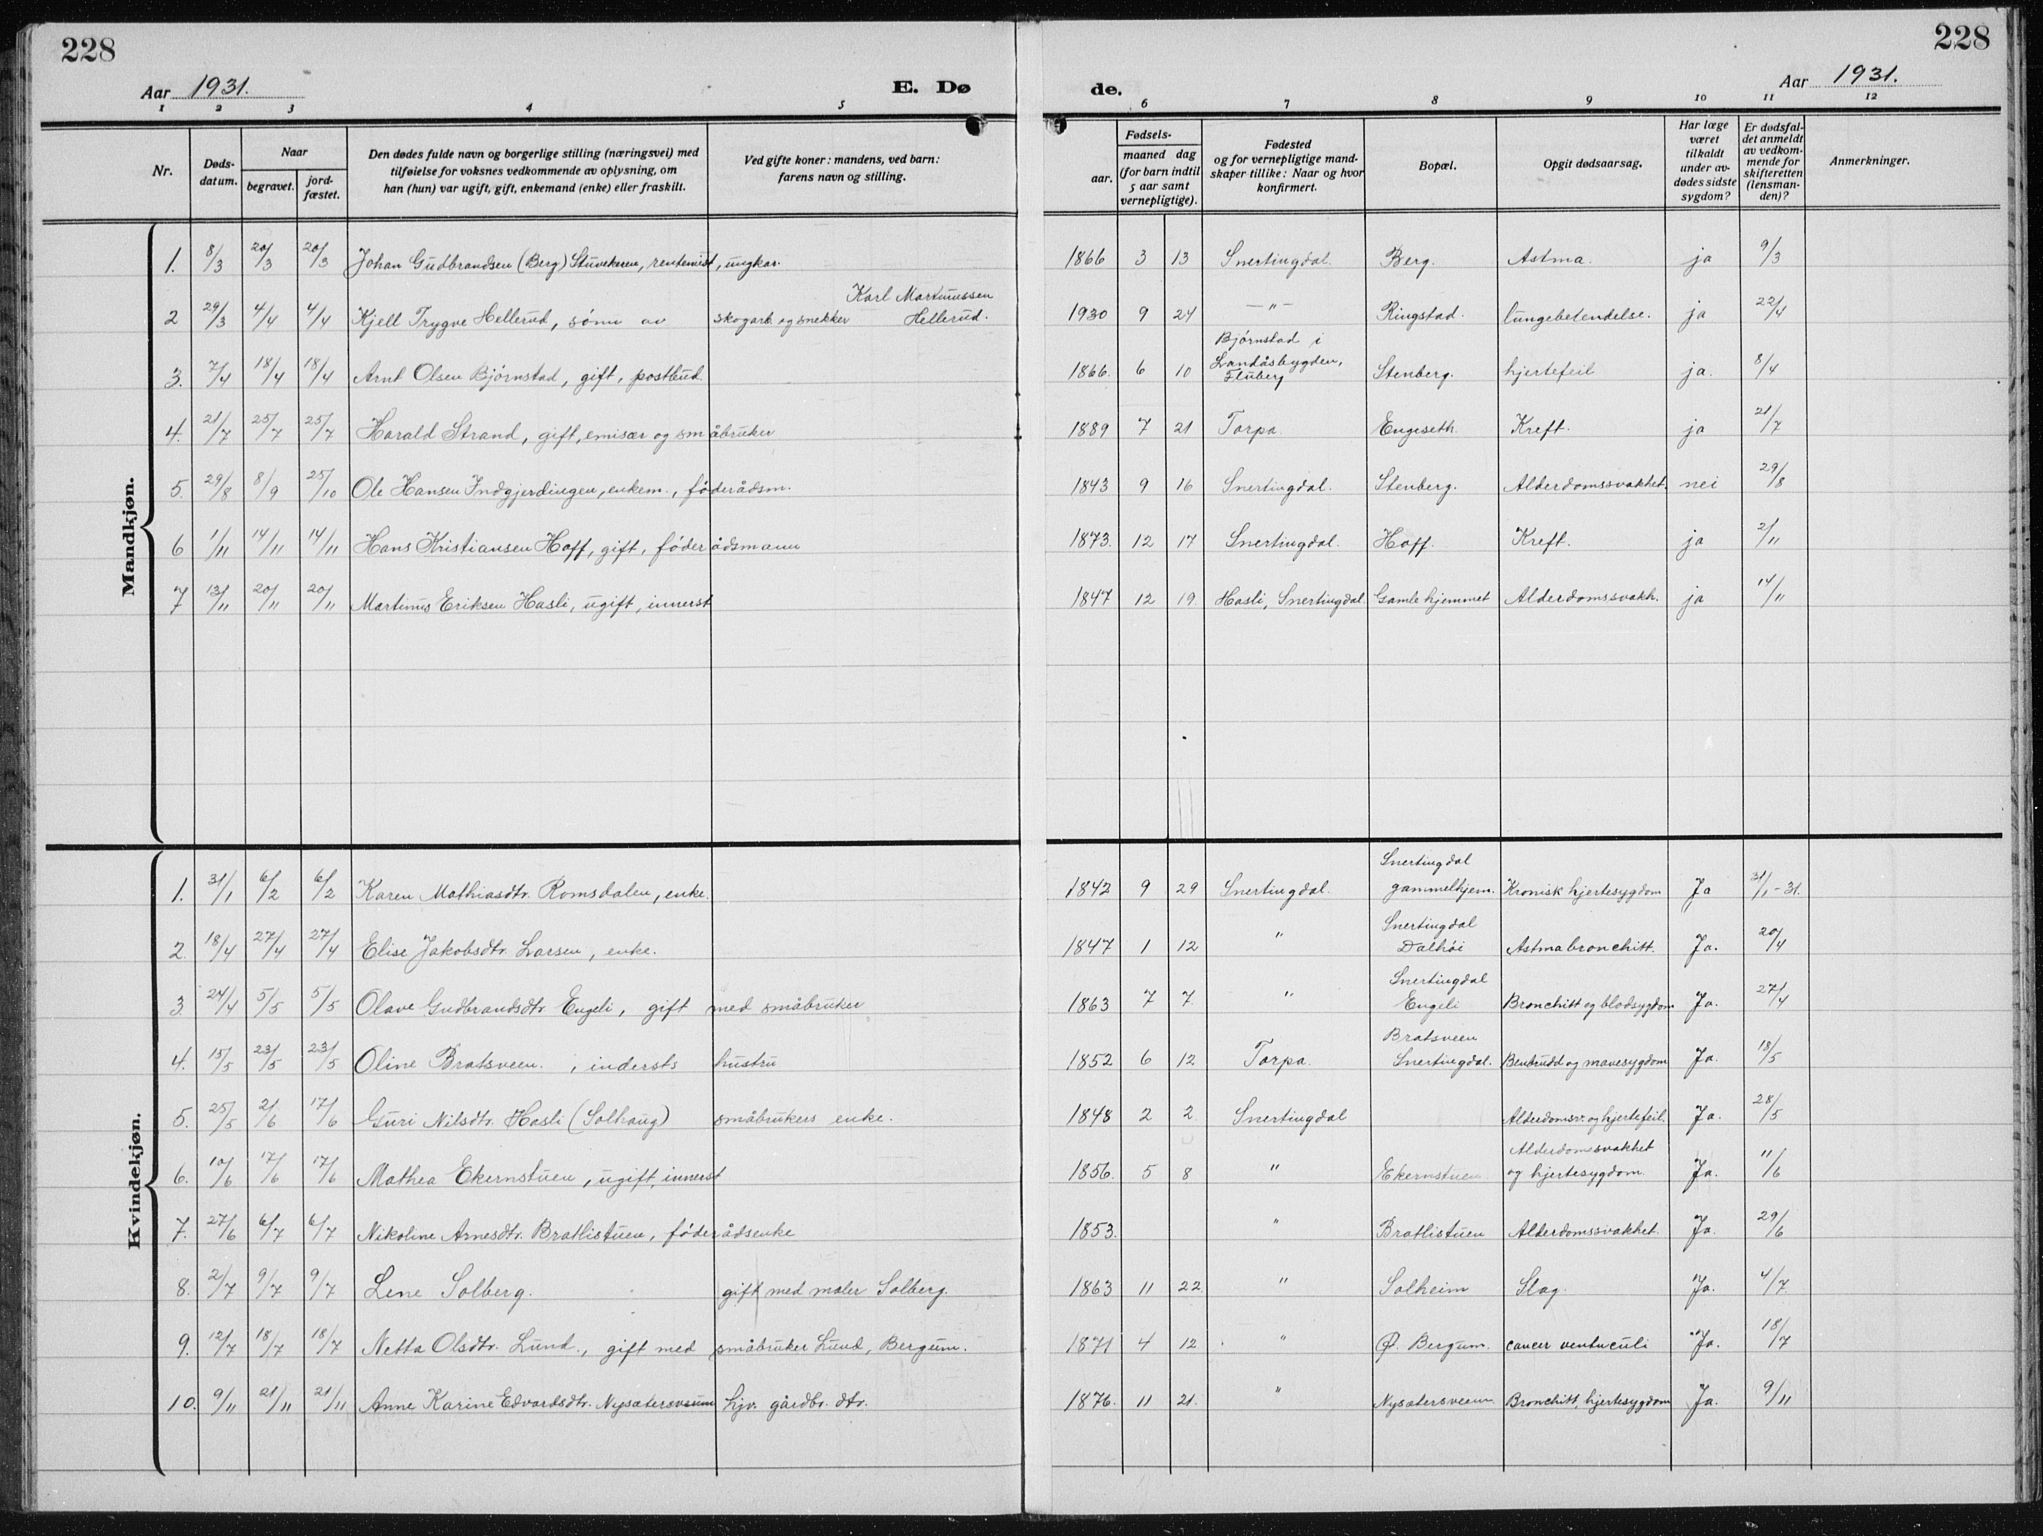 228
228
Aar 1931.
E. Dø
de.
Aar 1931.
1 2 3 4 5 6 7 8 9 10 11 12
Nr.
Døds-
datum.
Naar
begravet.
jord-
fæstet.
Den dødes fulde navn og borgerlige stilling (næringsvei) med
tilføielse for voksnes vedkommende av oplysning, om
han (hun) var ugift, gift, enkemand (enke) eller fraskilt.
Ved gifte koner: mandens, ved barn:
farens navn og stilling.
Fødsels-
aar.
maaned dag
(for barn indtil
5 aar samt
vernepligtige).
Fødested
og for vernepligtige mand-
skaper tillike: Naar og hvor
konfirmert.
Bopæl.
Opgit dødsaarsag.
Har læge
været
tilkaldt
under av-
dødes sidste
sygdom?
Er dødsfal-
det anmeldt
av vedkom-
mende for
skifteretten
(lensman-
den)?
Anmerkninger.
Mandkjøn.
1. 8/3 20/3 20/3 Johan Gudbrandsen (Berg) Stuvekeren, rentenist, ungkar. 1866 3 13 Snertingdal. Berg. Astma. ja 9/3
Karl Martinussen
2 29/3 4/4 4/4 Kjell Trygve Hellerud, sønn av skogarb. og snekker Hellerud. 1930 9 24 —"— Ringstad. lungebetendelse. ja 22/4
Bjørnstad i
3. 7/4 18/4 18/4 Arnt Olsen Bjørnstad, gift, postbud. 1866. 6 10 Landåsbygden, Stenberg. hjertefeil ja. 8/4
Fluberg
4. 21/7 25/7 25/7 Harald Strand, gift, emisær og småbruker 1889 7 21 Torpa. Engeseth. Kreft. ja 21/7
5. 29/8 8/9 25/10 Ole Hansen Indgjerdingen, enkem., føderådsm. 1843 9 16 Snertingdal. Stenberg. Alderdomssvakhet. nei 29/8
6 1/11 14/11 14/11 Hans Kristiansen Hoff, gift, føderådsmann 1873. 12 17 Snertingdal. Hoff. Kreft. ja 2/11
7 13/11 20/11 20/11 Martinus Eriksen Hasli, ugift, innerst 1847 12 19. Hasli, Snertingdal Gamlehjemmet Alderdomssvakh. ja 14/11
Kvindekjøn.
Snertingdal
1. 31/1 6/2 6/2 Karen Mathiasdtr. Romsdalen, enke. 1842 9 29 Snertingdal. gammelhjem. Kronisk hjertesygdom Ja 31/1-31.
Snertingdal
2. 18/4 27/4 27/4 Elise Jakobsdtr. Larsen, enke. 1847 1 12 " Dalhøi Astmabronchitt. Ja. 20/4
Snertingdal
3. 24/4 5/5 5/5 Olave Gudbrandsdtr. Engeli, gift med småbruker 1863 7 7. " Engeli Bronchitt og blodsygdom Ja. 27/4
Bratsveen
4. 15/5 23/5 23/5 Oline Bratsveen, indersts hustru 1852 6 12 Torpa. Snertingdal. Benbrudd og mavesygdom Ja. 18/5
5. 25/5 2/6 17/6 Guri Nilsdtr. Hasli (Solhaug) småbrukers enke. 1848 2 2. Snertingdal Alderdomsv. og hjertefeil. Ja. 28/5
Alderdomssvakhet
6. 10/6 17/6 17/6 Mathea Ekernstuen, ugift, innerst 1856. 5 8 " Ekernstuen og hjertesygdom. Ja. 11/6
7. 27/6 6/7 6/7 Nikoline Arnesdtr. Bratlistuen, føderådsenke 1853. " Bratlistuen Alderdomssvakhet. Ja. 29/6
8. 2/7 9/7 9/7 Lene Solberg. gift med maler Solberg. 1863 11 22 " Solheim Slag. Ja. 4/7
9. 12/7 18/7 18/7 Netta Olsdtr. Lund, gift med småbruker Lund, Bergum. 1871 4 12 " Ø. Bergum. cancer ventriculi Ja. 18/7
10. 9/11 21/11 21/11 Anne Karine Edvardsdtr. Nysætersveum hjv. gårdbr. dtr. 1876. 11 21. " Nysætersveen Bronchitt, hjertesygdom Ja. 9/11